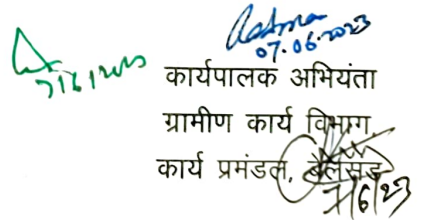 07.06.2023
कार्यपालक अभियंता
ग्रामीण कार्य विभाग
कार्य प्रमंडल, बेलसंड
7/6/23